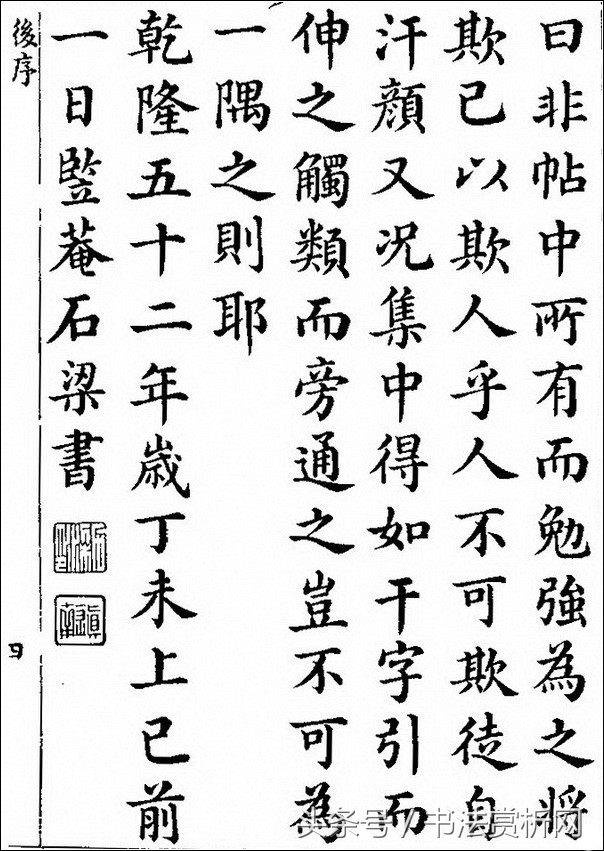 曰非帖中所有而勉強為之將
欺己以欺人乎人不可欺徒自
汗顏又况集中得如干字引而
伸之觸類而旁通之豈不可為
一隅之則耶
乾隆五十二年歲丁未上巳前
一日竪菴石梁書
後序
头条号 / 书法赏析网